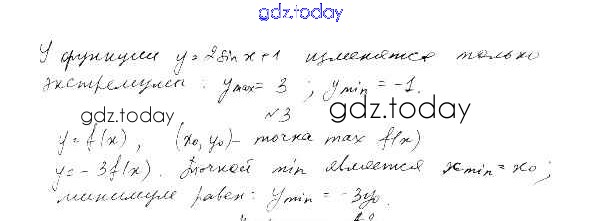 gdz.today
У функции y=2sin x+1 изменятся только
экстремумы: ymax= 3 ; ymin = -1.
gdz.today
№3
gdz.today
y=f(x), (x₀, y₀)- точка max f(x)
y=-3f(x). Точкой min является xmin= x₀;
минимум равен: ymin = -3y₀